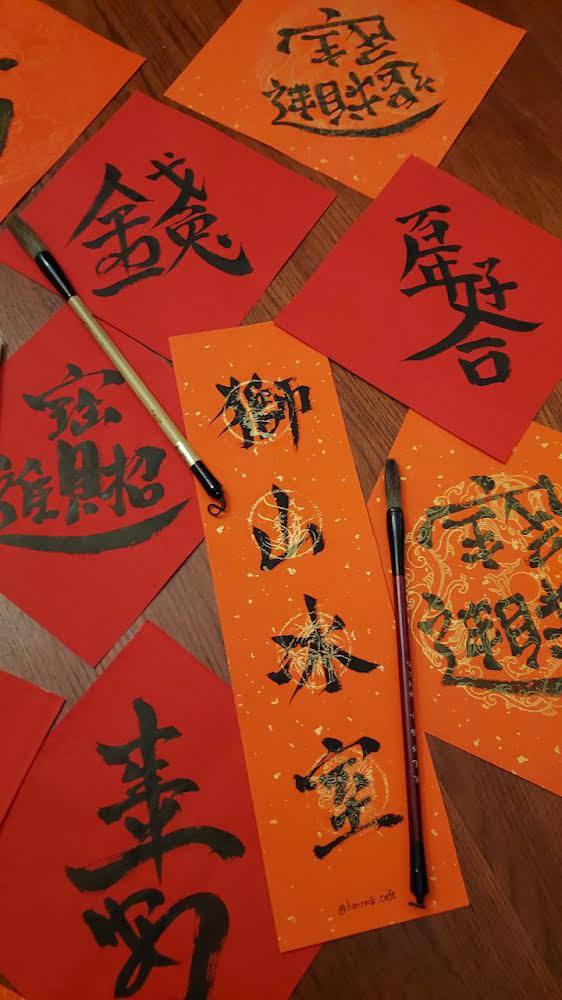 招財進寶
錢
百年好合
招財進寶
獅
山
氷
室
@lionrock.cafe
招財進寶